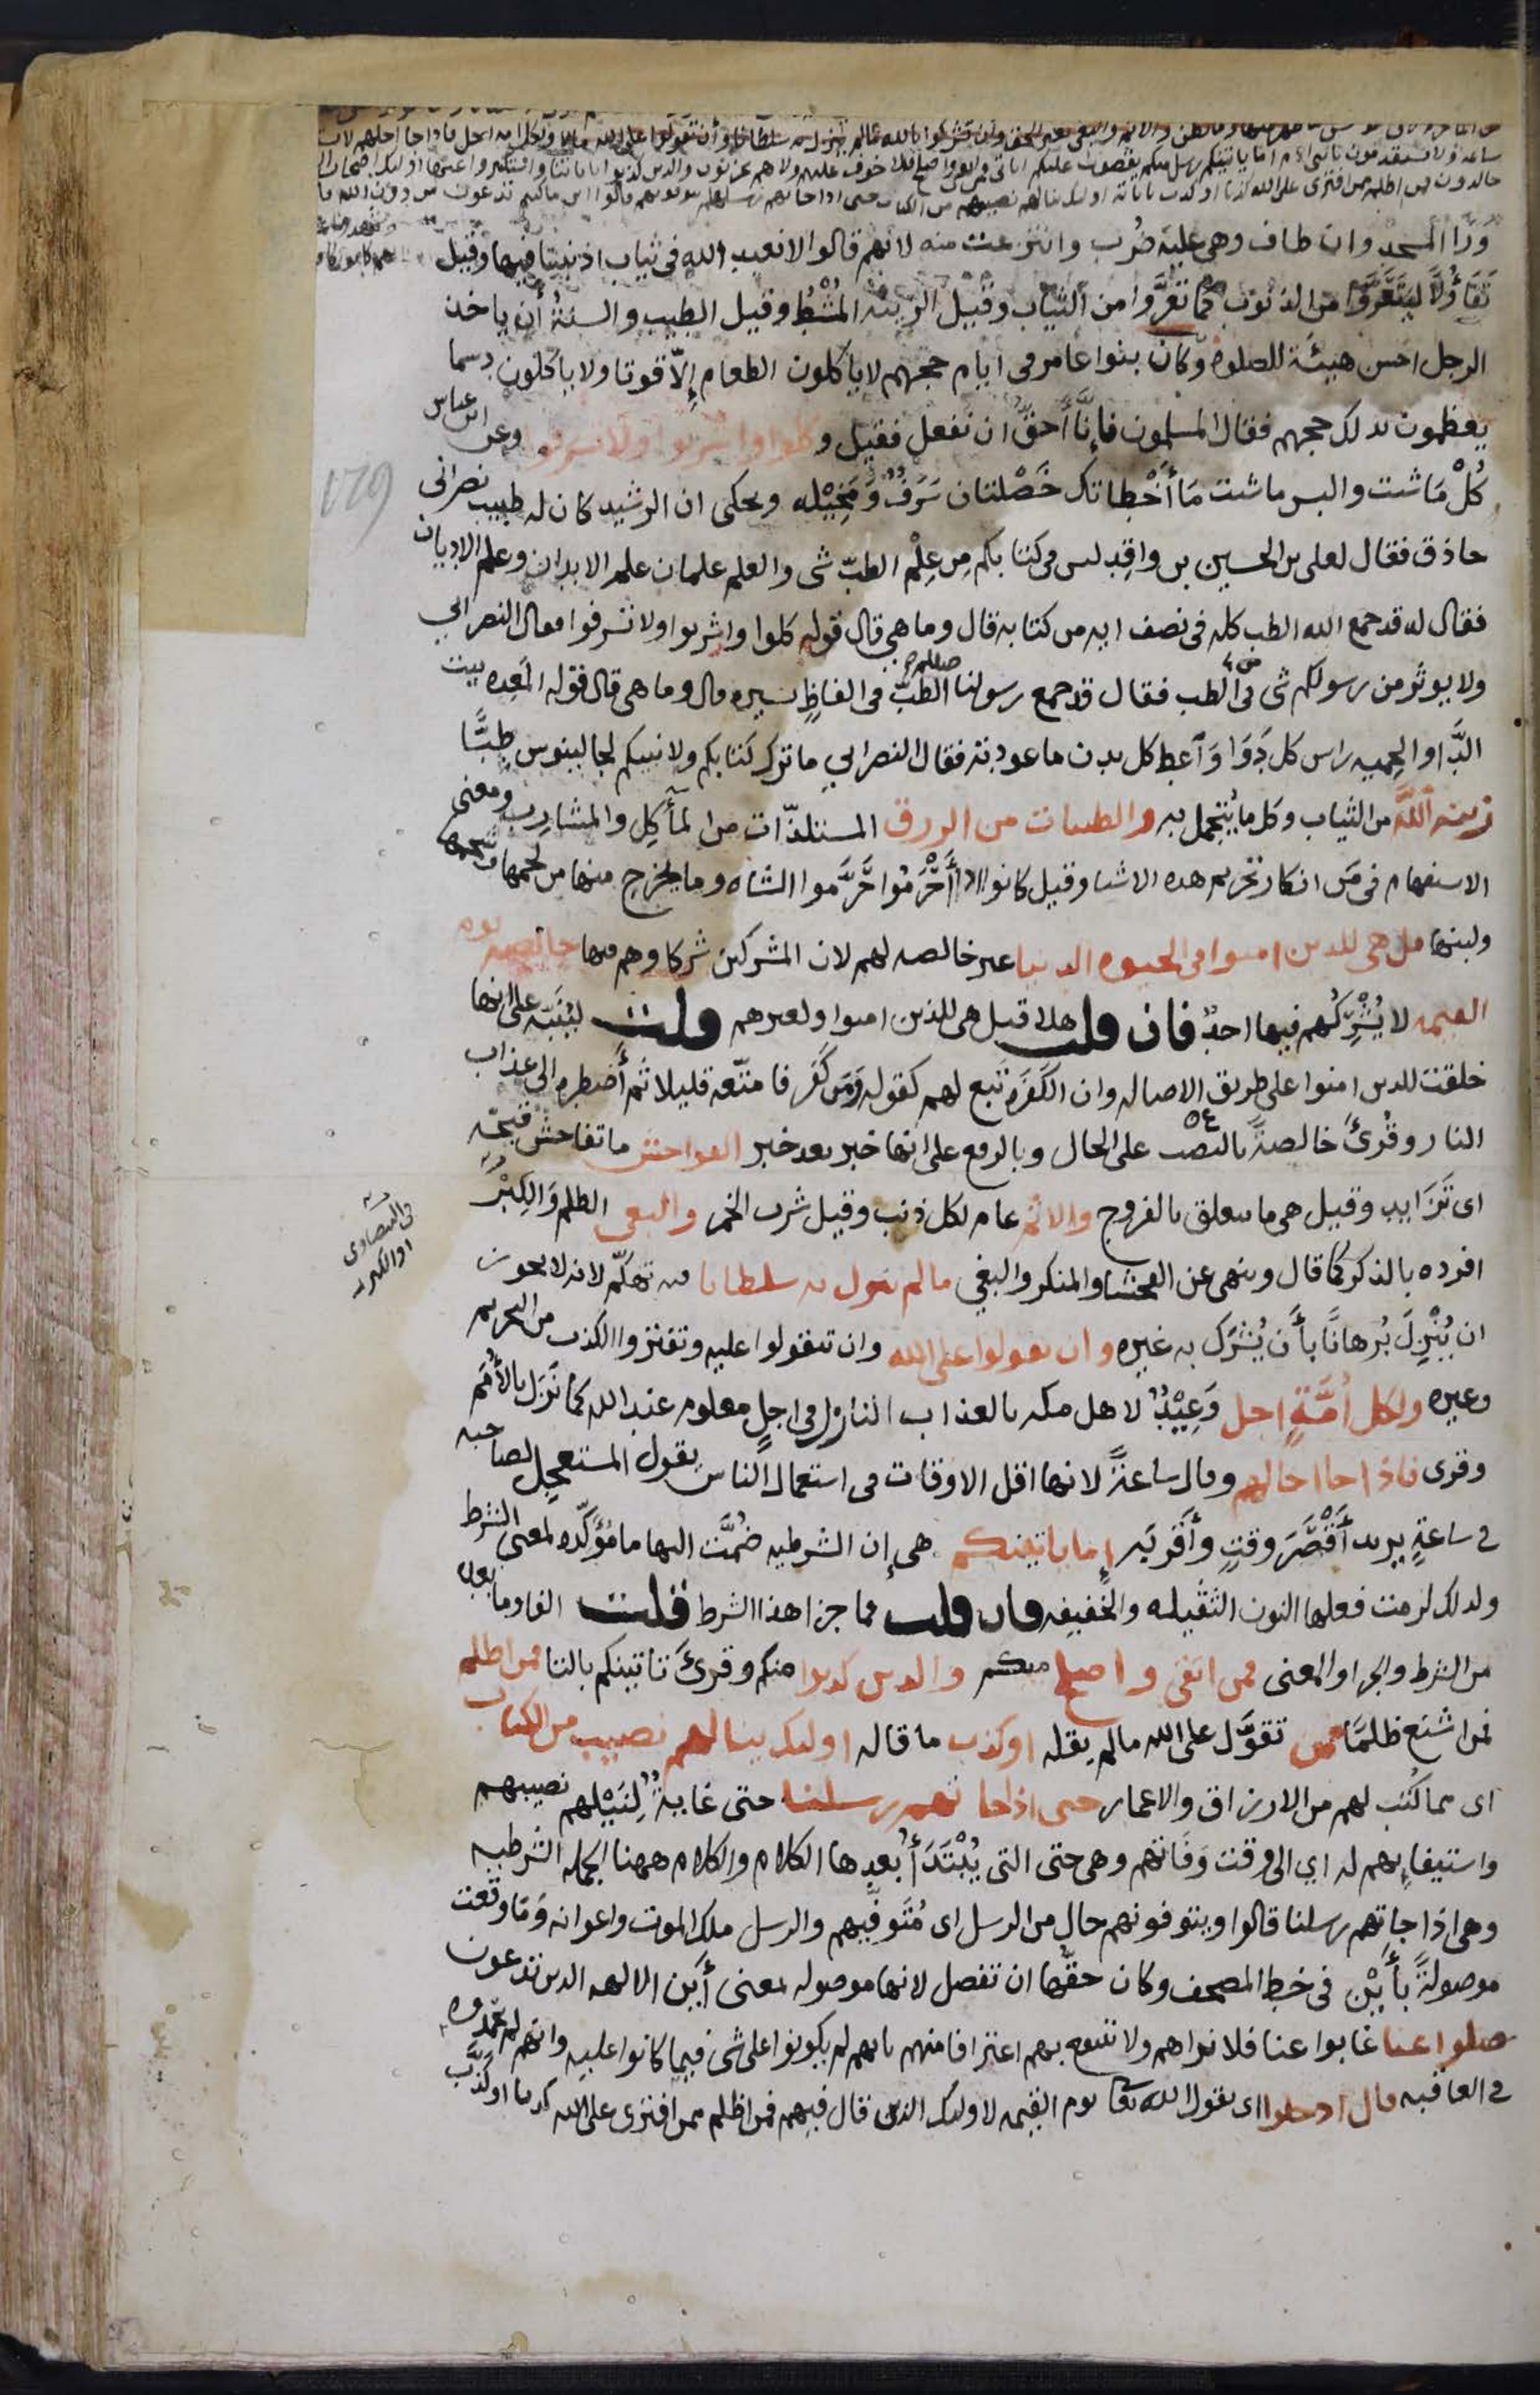 ساعة ولا يستقدمون يا بنى ادم اما ياتينكم رسل منكم يقصون عليكم اياتى فمن اتقى واصلح فلا خوف عليهم ولا هم يحزنون والذين كذبوا باياتنا واستكبروا عنها اولئك اصحاب النار
خالدون فمن اظلم ممن افترى على الله كذبا او كذب باياته اولئك ينالهم نصيبهم من الكتاب حتى اذا جاتهم رسلنا يتوفونهم قالوا اين ماكنتم تدعون من دون الله
ورا المسجد وان طاف وهى عليه ضُرب وانتزعت منه لانهم قالوا لا نعبد الله فى ثياب اذنبنا فيها وقيل
تَفَاؤُلًا ليتَعَرَّوا من الذنوب كما تعرَّوا من الثياب وقيل الزينه المُشْطُ وقيل الطيب والسنةُ أن ياخذ
الرجل احسن هيئة للصلوة وكان بنوا عامر فى ايام حجهم لا ياكلون الطعام إلّا قوتا ولا ياكلون دسما
يعظمون بذلك حجهم فقال المسلمون فإنَّا أَحقُّ ان نفعل فقيل وكلوا واشربوا ولا تسرفوا وعن ابن عباس
كُلْ مَا شئت والبس ما شئت مَا أَخْطاتك خَصْلتان سَرَفٌ وَمَخِيْله ويحكى ان الرشيد كان له طبيب نصرانى
حاذق فقال لعلى بن الحسين بن واقِد ليس فى كتابكم مِن عِلْم الطبّ شى والعلم علمان علم الابدان وعلم الاديان
فقال له قد جمع الله الطب كله فى نصف ايه من كتابه قال وما هى قال قوله كلوا واشربوا ولا تسرفوا فقال النصرانى
ولا يوثَر من رسولكم شى فى الطب فقال قد جمع رسولنا صلعم الطبّ فى الفاظٍ يسيره قال وما هى قال قوله المَعِده بيت
الدَّاء والحِميه راس كل دَوَا وَأعط كل بدن ما عودته فقال النصرانى ما ترك كتابكم ولا نبيكم لجالينوس طِبًّا
زينة اللَّه من الثياب وكل ما يُتجمل به والطيبات من الرزق المستلذّات من المأكِل والمشارب ومعنى
الاستفهام فى مَن انكار تحريم هذه الاشيا وقيل كانوا اذا أَحْرَمُوا حَرَّموا الشاة وما يخرج منها من لحمها وشحمها
ولبنها قل هى للذين امنوا فى الحيوة الدنيا غير خالصه لهم لان المشركين شركاوهم فيها خالصة يوم
القيمه لا يُشْرِكُهم فيها احدٌ فان قلت هلا قيل هى للذين امنوا ولغيرهم قلت ليُنَبّه على انها
خلقت للذين امنوا على طريق الاصاله وان الكَفَرة تَبع لهم كقوله وَمَن كَفَر فامتّعه قليلا ثم أَضطره الى عذاب
النار وقُرئَ خالصةً بالنصب على الحال وبالرفع على انها خبر بعد خبر الفواحش ما تفاحش قبحُه
اى تَزَايد وقيل هى ما يتعلق بالفروج والاثم عام لكل ذنب وقيل شرب الخمر والبغى الظلم وَالكِبْرَ
فى البيضاوى
او الكبر
افرده بالذكر كما قال وينهى عن الفحشا والمنكر والبغي مالم ينزل به سلطانا فيه تهكّم لانه لا يجوز
ان يُنْزِلَ بُرهانًا بأَن يُشْرَك به غيره وان تقولوا على الله وان تتقولوا عليه وتفتروا الكذب من التحريم
وغيره ولكل أُمَّةٍ اجل وَعِيْدٌ لاهل مكه بالعذاب النازل فى اجلٍ معلوم عند الله كما نَزَل بالأُمَم
وقرى فاذا جا اجالهم وقال ساعةً لانها اقل الاوقات فى استعمال الناس يقول المستعجل لصاحبه
فى ساعةٍ يريد أَقْصَرَ وقتٍ وأَقربَه إما ياتينكم هى إن الشرطيه ضُمَّت اليها ما مُؤكّده لمعنى الشرط
ولذلك لزمت فعلها النون الثقيله والخفيفه فان قلت فما جزا هذا الشرط قلت الفا وما بعده
من الشرط والجزا والمعنى فمن اتقى واصلح منكم والذين كذبوا منكم وقرئَ تاتينكم بالتا فمن اظلم
فمن اشنع ظلمًا ممن تقوَّل على الله مالم يقله او كذب ما قاله اولئك ينالهم نصيبهم من الكتاب
اى مما كُتب لهم من الارزاق والاعمار حتى اذا جاتهم رسلنا حتى غايةٌ لِنَيْلهم نصيبهم
واستيفايهم له اي الى وقت وَفَاتهم وهى حتى التى يُبْتَدَأُ بعدها الكلام والكلام ههنا الجمله الشرطيه
وهى اذا جاتهم رسلنا قالوا ويتوفونهم حال من الرسل اى مُتَوفّيهم والرسل ملك الموت واعوانه وَمَا وقعت
موصولةً بأَيْن فى خط المصحف وكان حقّها ان تفصل لانها موصوله بمعنى أَين الالهه الذين تدعون
ضلوا عنا غابوا عنا فلا نراهم ولا ننتفع بهم اعترافا منهم بانهم لم يكونوا على شى فيما كانوا عليه وانهم لم يحمدوه
فى العاقبه قال ادخلوا اى يقول الله تعا يوم القيمه لاولئك الذين قال فيهم فمن اظلم ممن افترى على الله كذبا او كذَّب